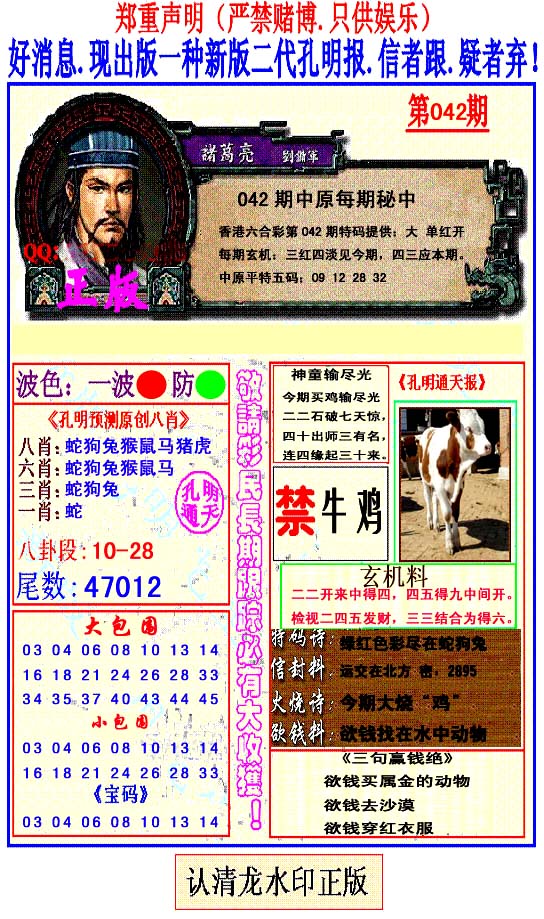 郑重声明（严禁赌博.只供娱乐）
好消息.现出版一种新版二代孔明报.信者跟.疑者弃!
第042期
諸葛亮 劉備軍
042期中原每期秘中
香港六合彩第042期特码提供：大 单红开
每期玄机：三红四淡见今期，四三应本期。
中原平特五码：09 12 28 32
QQ:
正版
波色：一波 防
《孔明预测原创八肖》
八肖：蛇狗兔猴鼠马猪虎
六肖：蛇狗兔猴鼠马
三肖：蛇狗兔
一肖：蛇
孔明
通天
八卦段：10-28
尾数：47012
大包围
03 04 06 08 10 13 14
16 18 21 24 26 28 33
34 35 37 40 43 44 45
小包围
03 04 06 08 10 13 14
16 18 21 24 26 28 33
《宝码》
03 04 06 08 10 13 14
敬請彩民長期跟踪必有大收獲！
神童输尽光
今期买鸡输尽光
二二石破七天惊，
四十出师三有名，
连四缘起三十来。
《孔明通天报》
禁牛鸡
玄机料
二二开来中得四，四五得九中间开。
检视二四五发财，三三结合为得六。
特码诗：绿红色彩尽在蛇狗兔
信封料：运交在北方 密，2895
火烧诗：今期大烧“鸡”
欲钱料：欲钱找在水中动物
《三句赢钱绝》
欲钱买属金的动物
欲钱去沙漠
欲钱穿红衣服
认清龙水印正版